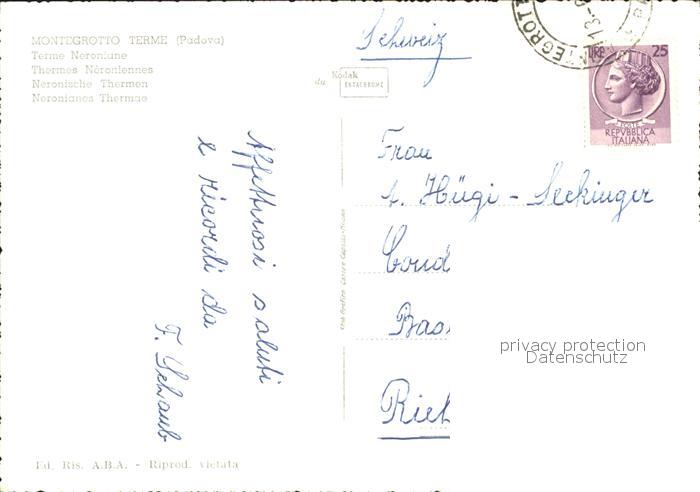 MONTEGROTTO TERME (Padova)
Terme Neroniane
Thermes Néroniennes
Neronische Thermen
Neronianos Thermae
du Kodak
EKTACHROME
Schweiz
LIRE 25
POSTE
REPVBBLICA
ITALIANA
Frau
A. Hügi - Seckinger
Cond
Bas
Rieh
Affettuosi saluti
e ricordi da
F. Schaub
privacy protection
Datenschutz
Ed. Ris. A.B.A. - Riprod. vietata